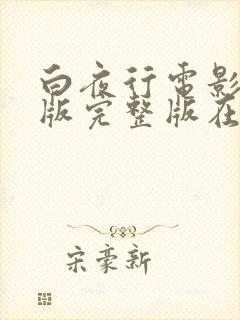 白夜行电影
版完整版在
宋豪新